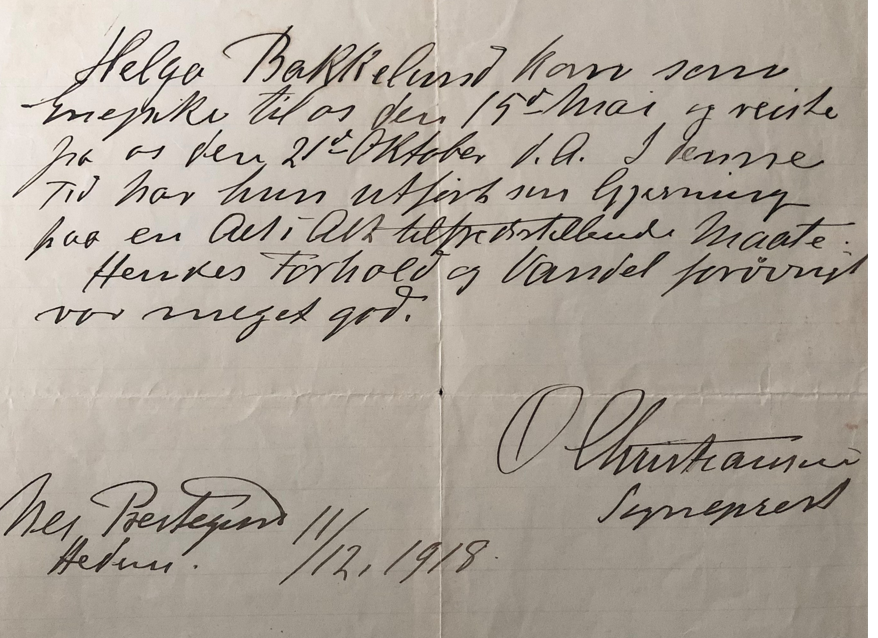 Helga Bakkelund kom som
Enepike til os den 15de Mai og reiste
fra os den 21de Oktober d.A. I denne
Tid har hun utført sin Gjerning
paa en Alt i Alt tilfredsstillende Maate.
Hendes Forhold og Vandel forøvrigt
var meget god.
O Christiansen
Sogneprest
Nes Prestegård 11/12. 1918.
Hedm.